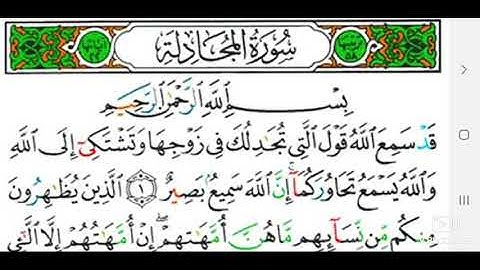 سُورَةُ المُجَادلة
بِسْمِ اللَّهِ الرَّحْمَٰنِ الرَّحِيمِ
قَدْ سَمِعَ اللَّهُ قَوْلَ الَّتِي تُجَٰدِلُكَ فِي زَوْجِهَا وَتَشْتَكِيٓ إِلَى اللَّهِ
وَاللَّهُ يَسْمَعُ تَحَاوُرَكُمَآ إِنَّ اللَّهَ سَمِيعٌۢ بَصِيرٌ ١ الَّذِينَ يُظَٰهِرُونَ
مِنكُم مِّن نِّسَآئِهِم مَّا هُنَّ أُمَّهَٰتِهِمْ ۖ إِنْ أُمَّهَٰتُهُمْ إِلَّا الَّٰٓـِٔي